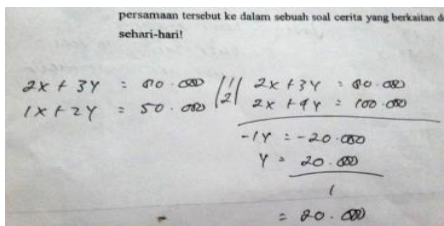 persamaan tersebut ke dalam sebuah soal cerita yang berkaitan
sehari-hari!
2x + 3y = 80.000 |1| 2x + 3y = 80.000
1x + 2y = 50.000 |2| 2x + 4y = 100.000
-1y = -20.000
y = 20.000
1
= 20.000